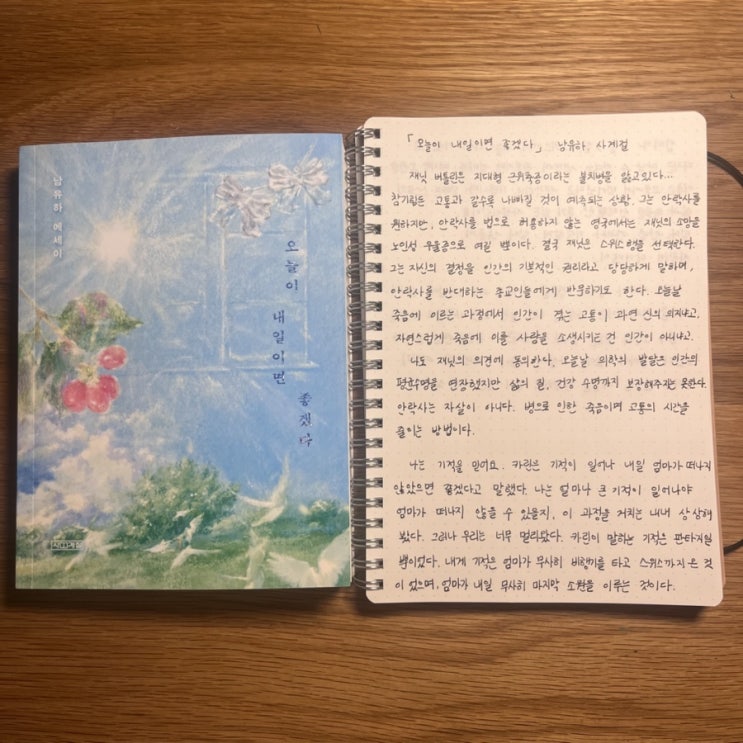 남유하 에세이
오늘이
내일이면
좋겠다
사계절
「오늘이 내일이면 좋겠다」 남유하, 사계절
재닛 버틀린은 지대형 근위축증이라는 불치병을 앓고있다...
참기힘든 고통과 갈수록 나빠질 것이 예측되는 상황. 그는 안락사를
원하지만, 안락사를 법으로 허용하지 않는 영국에서는 재닛의 소망을
노인성 우울증으로 여길 뿐이다. 결국 재닛은 스위스행을 선택한다.
그는 자신의 결정을 인간의 기본적인 권리라고 당당하게 말하며,
안락사를 반대하는 종교인들에게 반문하기도 한다. 오늘날
죽음에 이르는 과정에서 인간이 겪는 고통이 과연 신의 의지냐고.
자연스럽게 죽음에 이를 사람을 소생시키는 건 인간이 아니냐고.
나도 재닛의 의견에 동의한다. 오늘날 의학의 발달은 인간의
평균수명을 연장했지만 삶의 질, 건강 수명까지 보장해주지는 못한다.
안락사는 자살이 아니다. 병으로 인한 죽음이며 고통의 시간을
줄이는 방법이다.
나는 기적을 믿어요. 카린은 기적이 일어나 내일 엄마가 떠나지
않았으면 좋겠다고 말했다. 나는 얼마나 큰 기적이 일어나야
엄마가 떠나지 않을 수 있을지, 이 과정을 거치는 내내 상상해
봤다. 그러나 우리는 너무 멀리왔다. 카린이 말하는 기적은 판타지일
뿐이었다. 내게 기적은 엄마가 무사히 비행기를 타고 스위스까지 온 것
이었으며, 엄마가 내일 무사히 마지막 소원을 이루는 것이다.